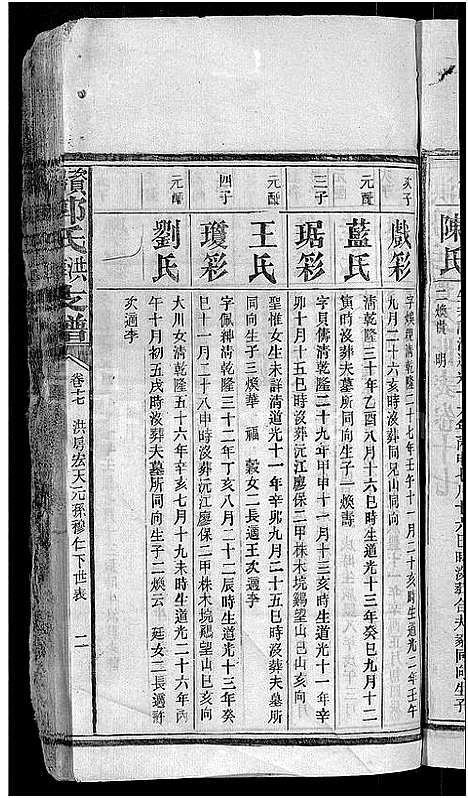 陳氏
二煥貴 明
次子
戲彩
九月二十六亥時沒葬同兄山同向
元配
藍氏
清乾隆三十年乙酉八月十六巳時生道光十三年癸巳九月十二
寅時沒葬夫墓所同向生子一煥壽
三子
琚彩
字貝儔清乾隆二十九年甲申十一月十三亥時生道光十一年辛
卯十月十五巳時沒葬沅江廖保二甲株木垸鷄望山巳亥向
元配
王氏
聖惟女生未詳清道光十一年辛卯九月二十五巳時沒葬夫墓所
同向生子三煥華 福 穀女二長適王次適李
四子
瓊彩
字佩神清乾隆三十二年丁亥八月二十二辰時生道光十三年癸
巳十一月二十八申時沒葬沅江廖保二甲株木垸鷄望山巳亥向
元配
劉氏
大川女清乾隆五十六年辛亥七月十九未時生道光二十六年丙
午十月初五戌時沒葬夫墓所同向生子二煥云 延女二長適許
次適李
郭氏洪之譜
卷十七 洪房宏大元孫穆仁下世表 二